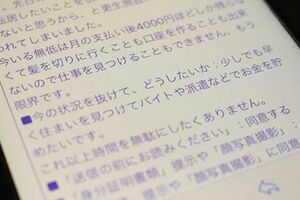 居したいことを
ないと思うから、と更生施
われてしまいました。
今いる無低は月の支払い後4000円ほどしか残ら
くて髪を切りに行くことも口座を作ることも出来
ないので仕事を見つけることもできません。もう
限界です。
■今の状況を抜けて、どうしたいか：少しでも早
く住まいを見つけてバイトや派遣などでお金を貯
めたいです。
これ以上時間を無駄にしたくありません。
■「送信の前にお読みください」：同意する
■「身分証明書類」提示や「顔写真撮影」
提示や「顔写真撮影」に同意